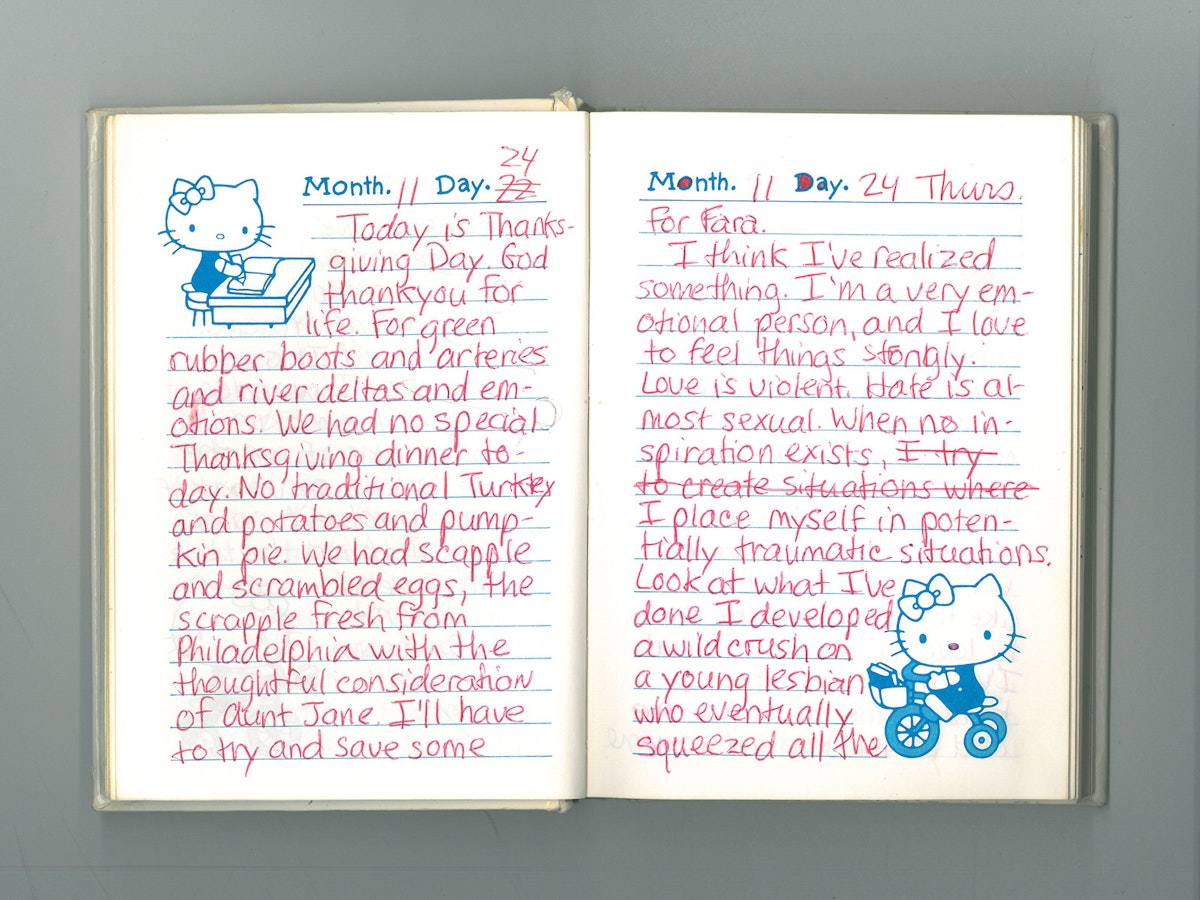 24
Month. 11 Day. 22
Today is Thanks-
giving Day. God
thankyou for
life. For green
rubber boots and arteries
and river deltas and em-
otions. We had no special
Thanksgiving dinner to-
day. No traditional Turkey
and potatoes and pump-
kin pie. We had scapple
and scrambled eggs, the
scrapple fresh from
Philadelphia with the
thoughtful consideration
of Aunt Jane. I'll have
to try and save some
Month. 11 Day. 24 Thurs.
for Fara.
I think I've realized
something. I'm a very em-
otional person, and I love
to feel things stongly.
Love is violent. Hate is al-
most sexual. When no in-
spiration exists, I try
to create situations where
I place myself in poten-
tially traumatic situations.
Look at what I've
done I developed
a wild crush on
a young lesbian
who eventually
squeezed all the